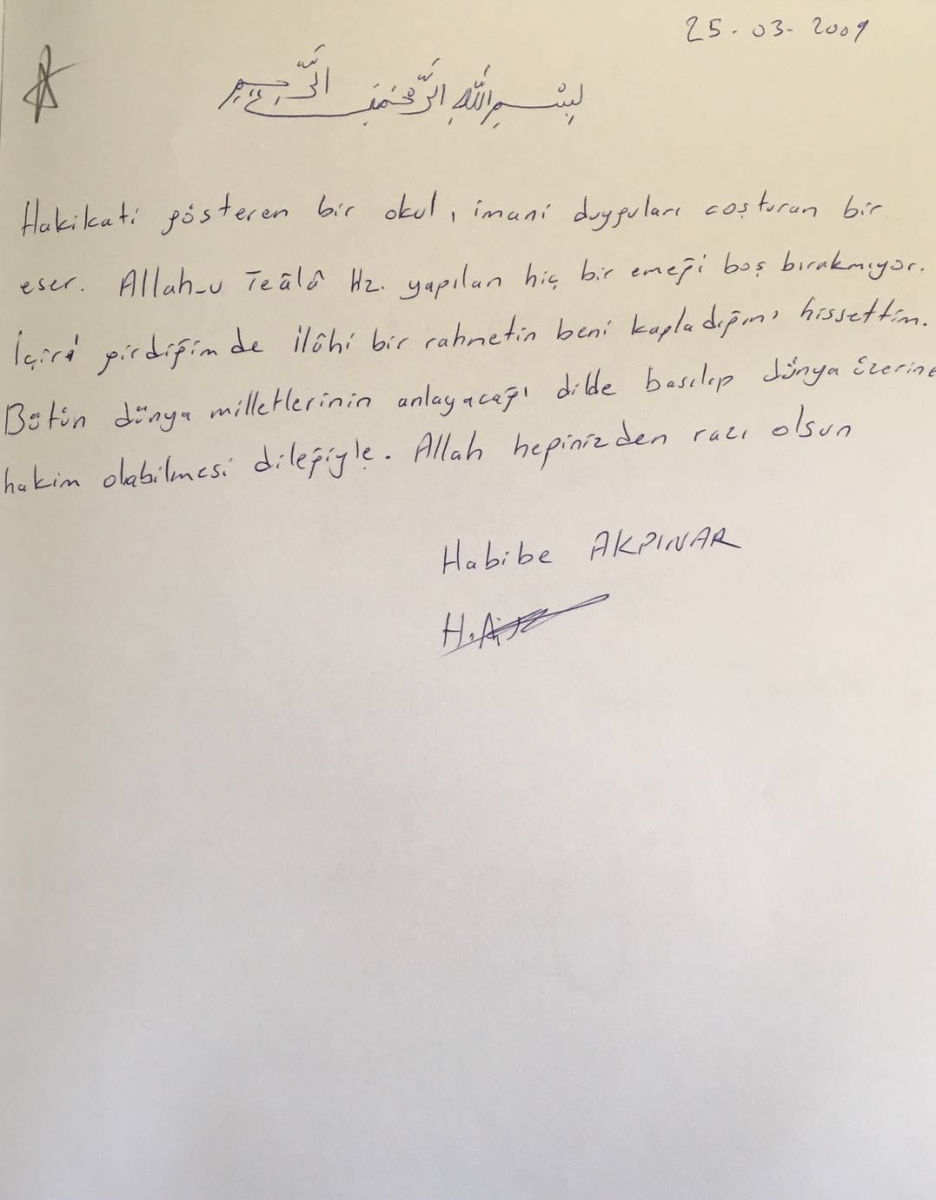 25-03-2009
بِسْمِ اللّٰهِ الرَّحْمَنِ الرَّحِيمِ
Hakikati gösteren bir okul, imani duyguları coşturan bir
eser. Allah-u Teâlâ Hz. yapılan hiç bir emeği boş bırakmıyor.
İçire girdiğimde ilâhi bir rahmetin beni kapladığını hissettim.
Bütün dünya milletlerinin anlayacağı dilde basılıp dünya üzerine
hakim olabilmesi dileğiyle. Allah hepinizden razı olsun
Habibe AKPINAR